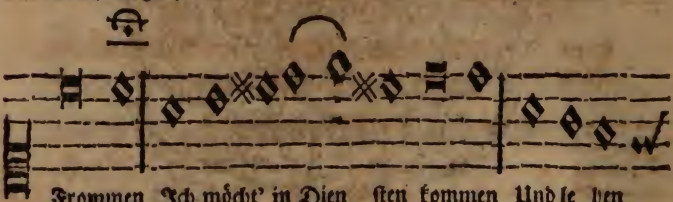 Frommen Ich möcht' in Dien sten kommen Und le ben